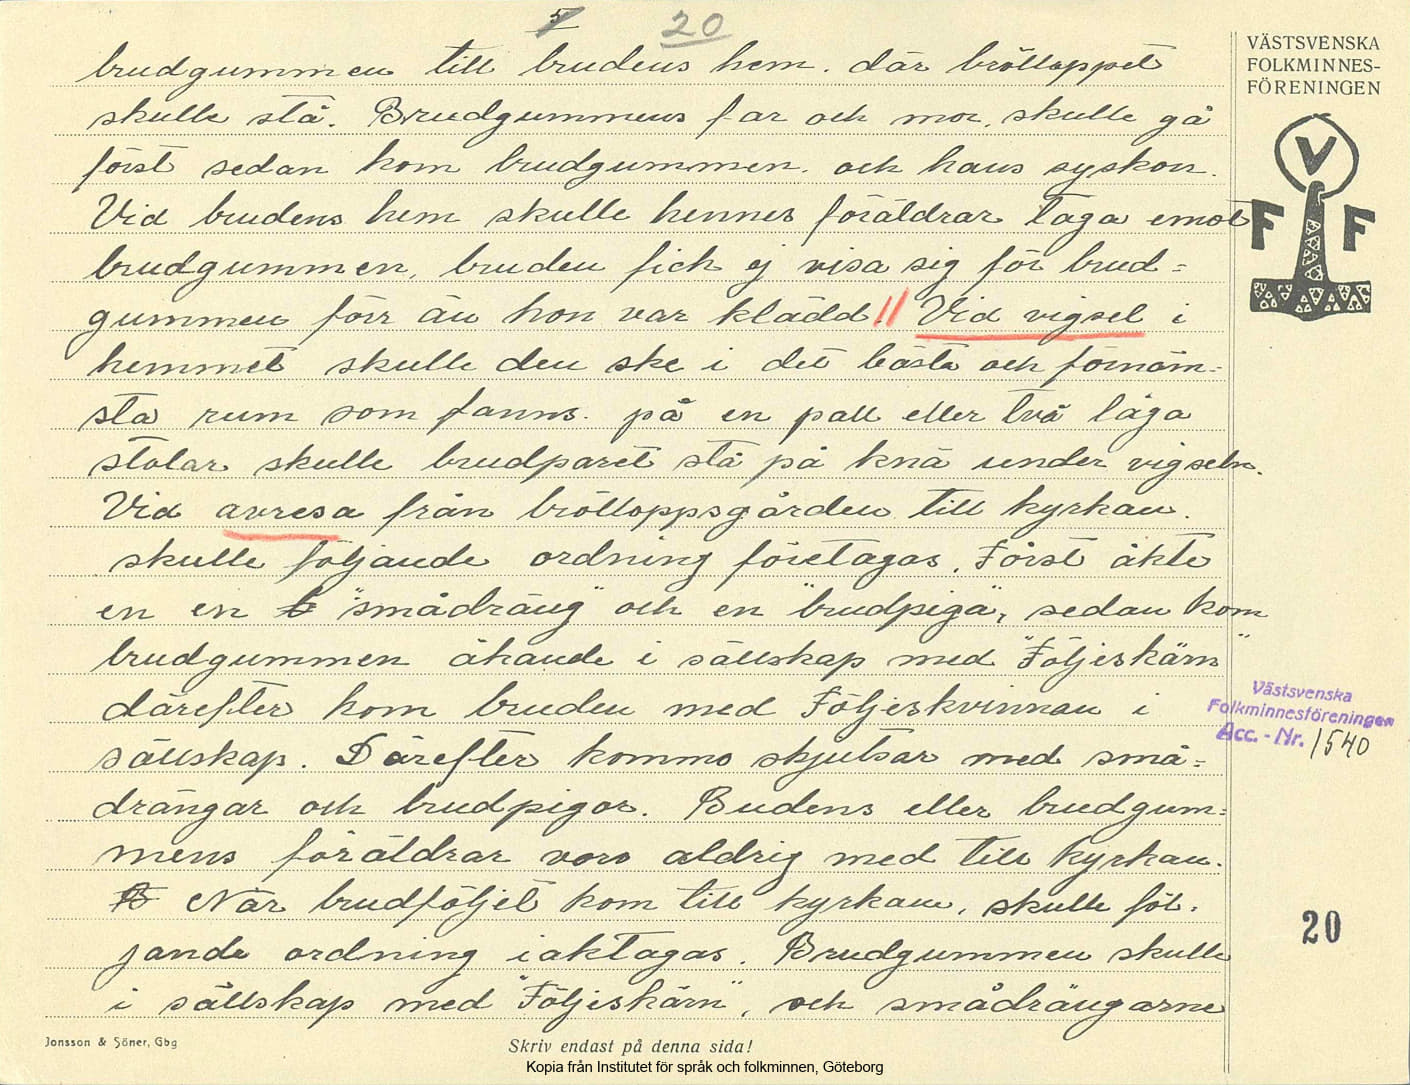 5 20
brudgummen till brudens hem. där brölloppet
skulle stå. Brudgummens far och mor, skulle gå
först sedan kom brudgummen. och hans syskon.
Vid brudens hem skulle hennes föräldrar taga emot
brudgummen, bruden fick ej visa sig för brud=
gummen förr än hon var klädd. Vid vigsel i
hemmet skulle den ske i det bästa och förnäm=
sta rum som fanns. på en pall eller två låga
stolar skulle brudparet stå på knä under vigseln.
Vid avresa från brölloppsgården till kyrkan.
skulle följande ordning företagas. Först åkte
en en "smådräng" och en "brudpiga", sedan kom
brudgummen åkande i sällskap med "Följeskärn"
därefter kom bruden med Följeskvinnan i
sällskap. Därefter kommo skjutsar med små=
drängar och brudpigor. Budens eller brudgum=
mens föräldrar voro aldrig med till kyrkan.
När brudföljet kom till kyrkan, skulle föl=
jande ordning iakttagas. Brudgummen skulle
i sällskap med "Följeskärn", och smådrängarne
VÄSTSVENSKA
FOLKMINNES-
FÖRENINGEN
V
F F
Västsvenska
Folkminnesföreningen
Acc.-Nr. 1540
20
Jonsson & Söner, Gbg
Skriv endast på denna sida!
Kopia från Institutet för språk och folkminnen, Göteborg